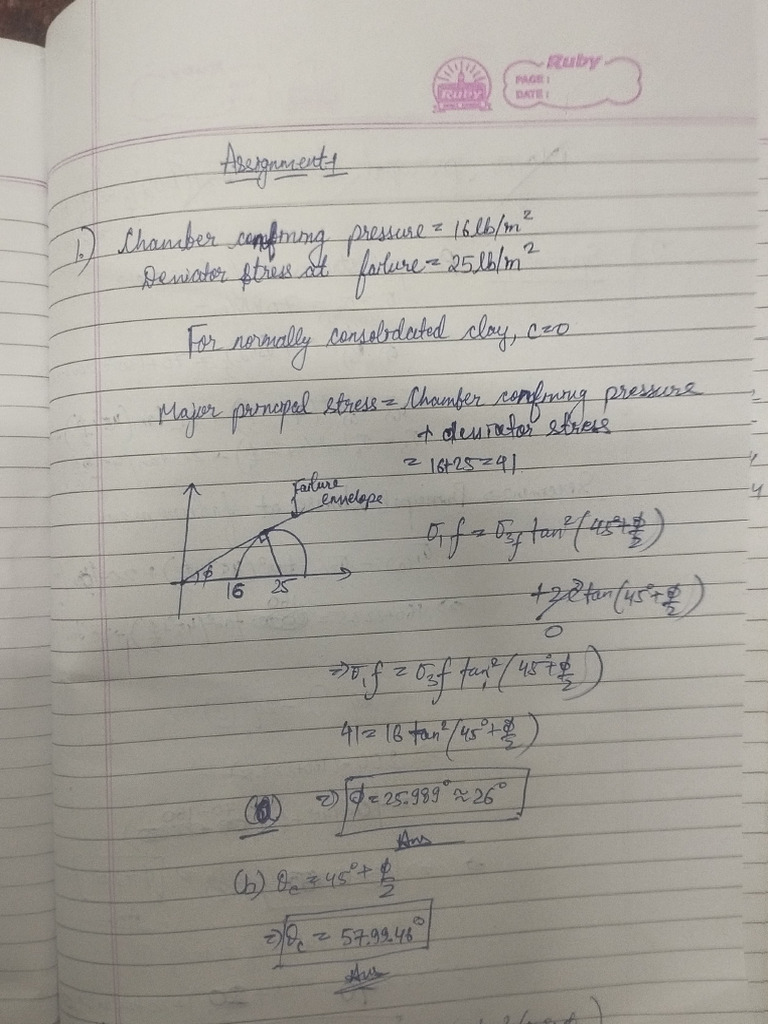 Ruby
PAGE:
DATE:
Assignment-1
1.) Chamber confining pressure = 16 lb/m²
Deviator stress at failure = 25 lb/m²
For normally consolidated clay, c=0
Major principal stress = Chamber confining pressure
+ deviator stress
= 16+25=41
Failure
envelope
σ₁f = σ₃f tan²(45°+φ/2)
φ
16 25
+2c tan(45°+φ/2)
0
⇒σ₁f = σ₃f tan²(45°+φ/2)
41=16 tan²(45°+φ/2)
⇒ φ=25.989°≈26°
Ans
(b) θc = 45°+φ/2
⇒ θc = 57.99.46°
Ans